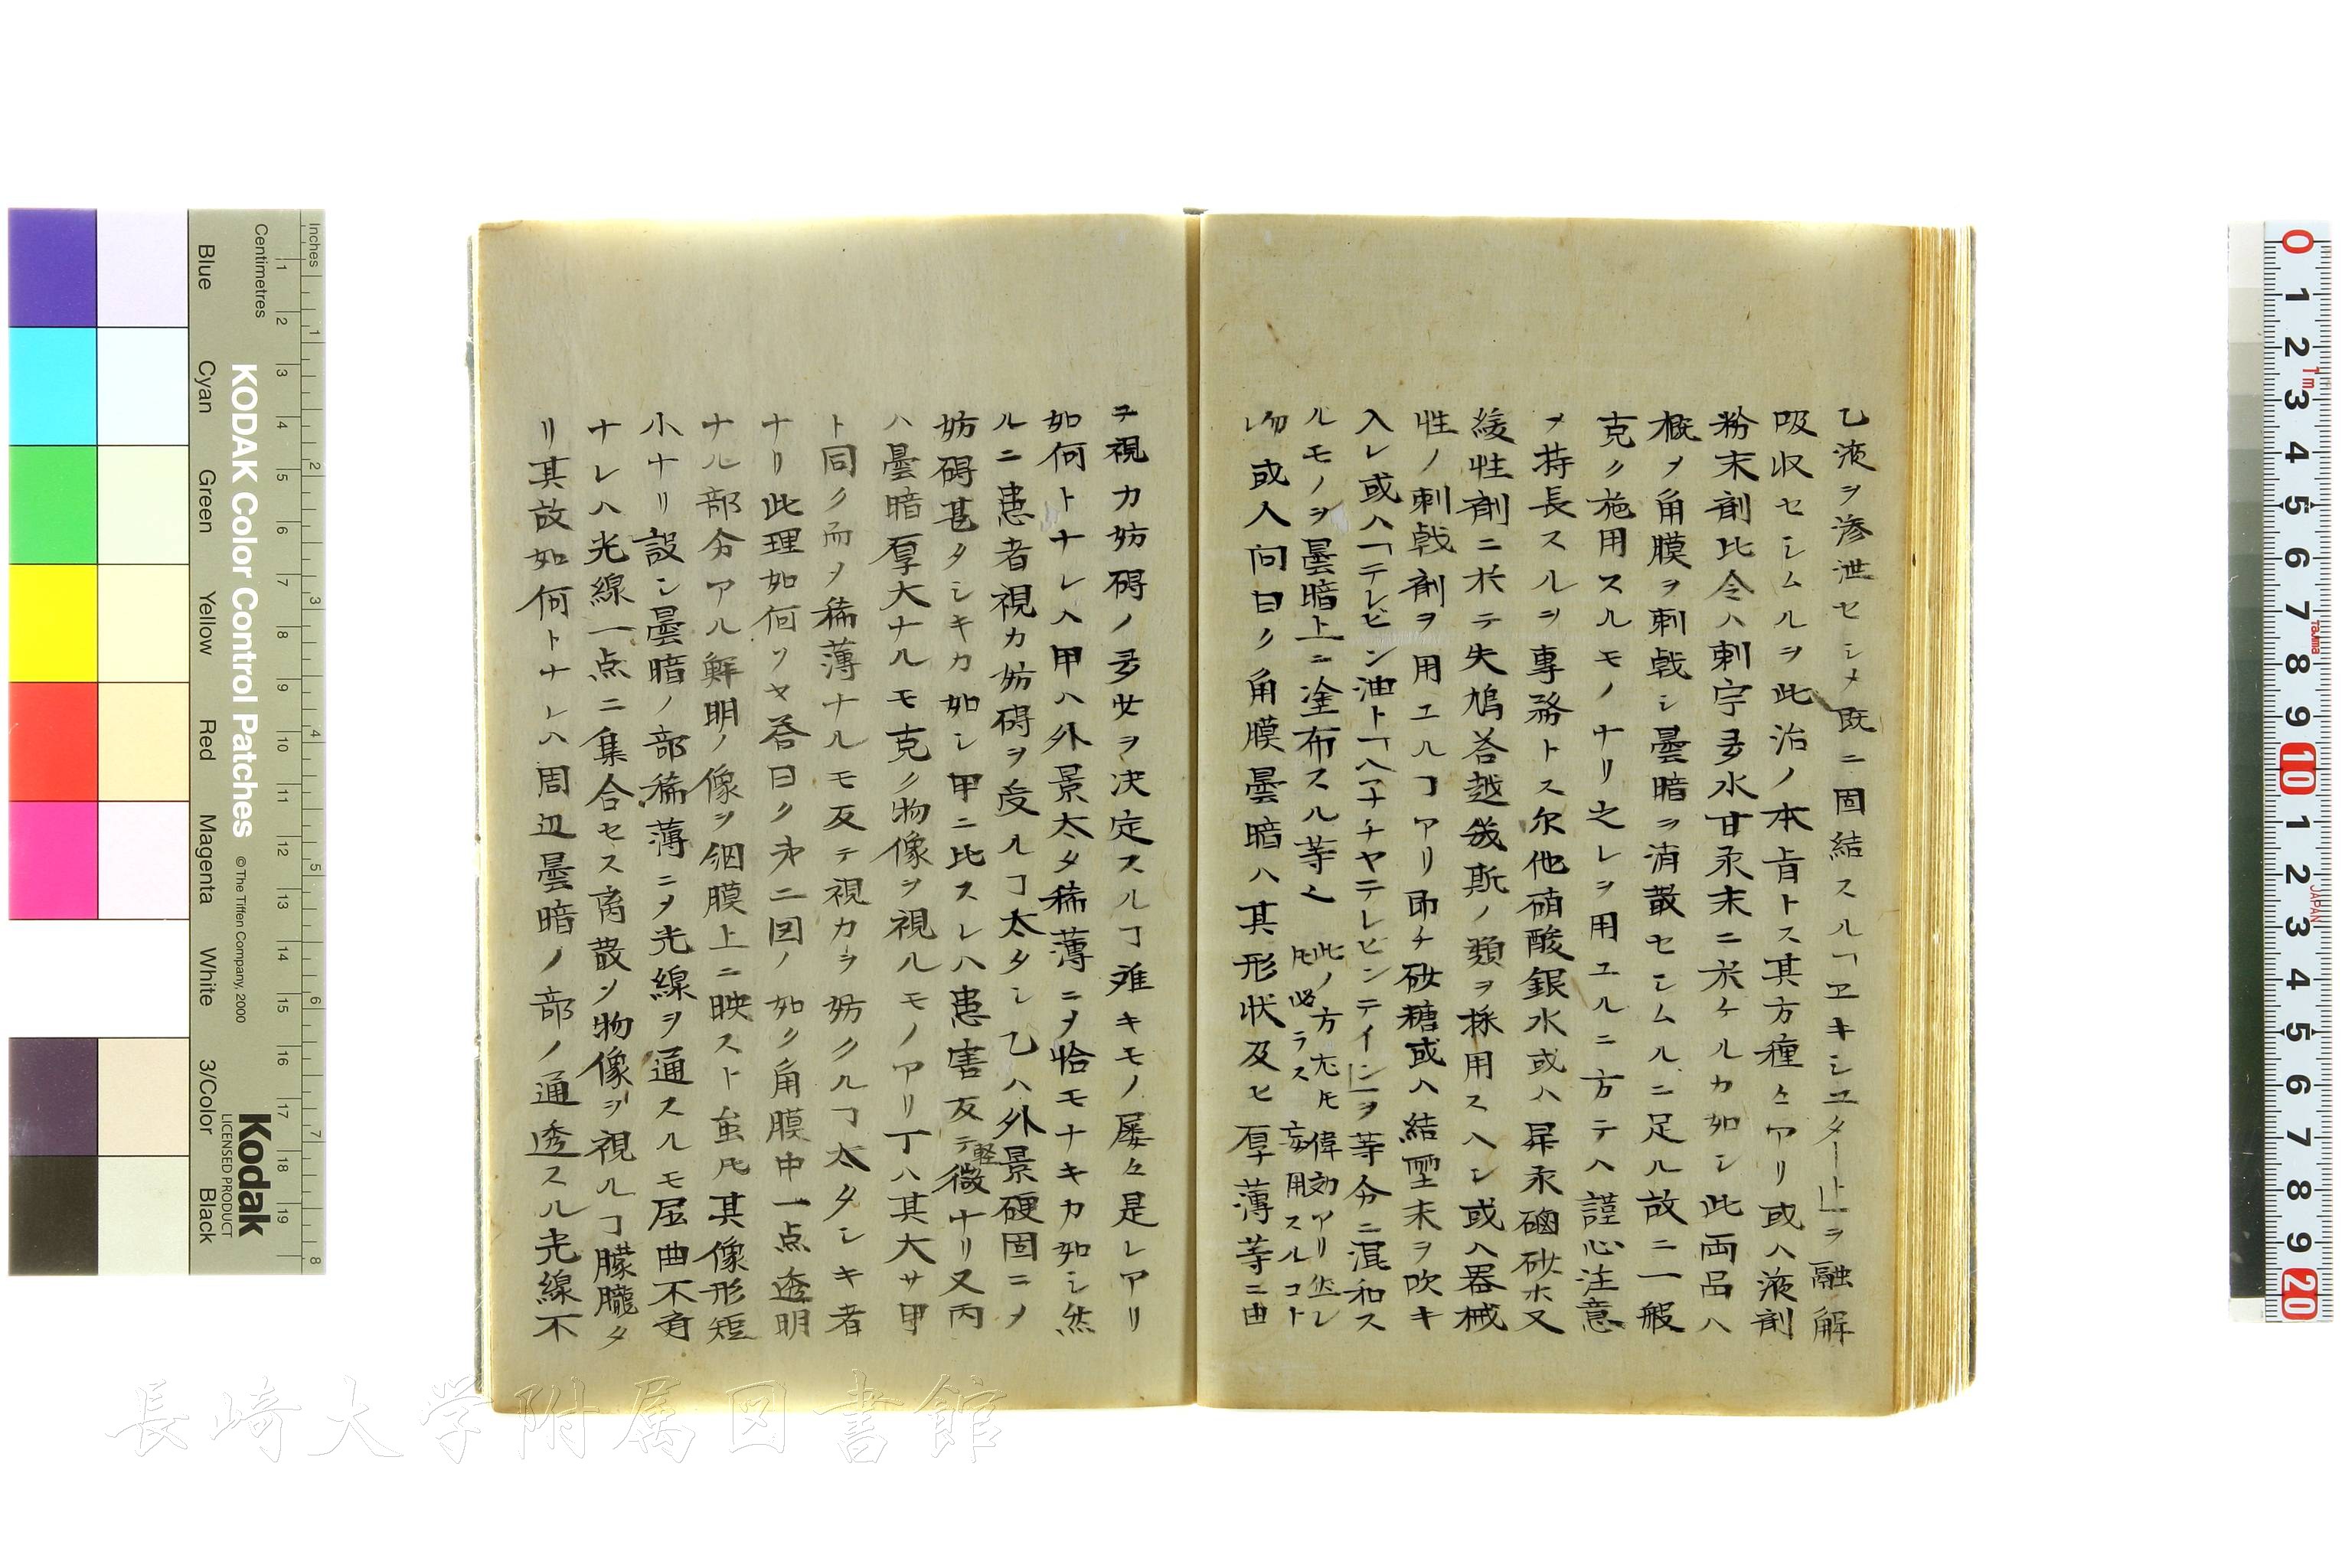 乙液ヲ滲泄セシメ既ニ固結スル「ヱキシユタート」ヲ融解
吸収セシムルヲ此治ノ本旨トス其方種々アリ或ハ液剤
粉末剤比令ハ剌宇多水甘汞末ニ於ケルカ如シ此両品ハ
概メ角膜ヲ刺戟シ曇暗ヲ消散セシムルニ足ル故ニ一般
克ク施用スルモノナリ之レヲ用ユルニ方テハ謹心注意
ヲ持長スルヲ専務トス尔他硝酸銀水或ハ昇汞磠砂ホ又
緩性剤ニ於テ失鳩荅越幾斯ノ類ヲ採用スヘシ或ハ器械
性ノ刺戟剤ヲ用ユルヿアリ即チ砂糖或ハ結垽末ヲ吹キ
入レ或ハ「テレビン油ト「ハナチヤテレビンテイン」ヲ等分ニ混和ス
ルモノヲ曇暗上ニ塗布スル等之 此ノ方尤モ偉効アリ然レ
𪜈必ラス妄用スルコト
勿レ 或人問曰ク角膜曇暗ハ其形状及ヒ厚薄等ニ由
テ視力妨碍ノ多少ヲ決定スルヿ難キモノ屡々是レアリ
如何トナレハ甲ハ外景太タ稀薄ニメ恰モナキカ如シ然
ルニ患者視力妨碍ヲ受ルヿ太タシ乙ハ外景硬固ニメ
妨碍甚タシキカ如シ甲ニ比スレハ患害反テ軽微ナリ又丙
ハ曇暗厚大ナルモ克ク物像ヲ視ルモノアリ丁ハ其大サ甲
ト同ク而メ稀薄ナルモ反テ視力ヲ妨クルヿ太タシキ者
ナリ此理如何ソヤ荅曰ク第二図ノ如ク角膜中一点透明
ナル部分アル鮮明ノ像ヲ網膜上ニ映スト虽𪜈其像形短
小ナリ設シ曇暗ノ部稀薄ニメ光線ヲ通スルモ屈曲不斉
ナレハ光線一点ニ集合セス离散ソ物像ヲ視ルヿ朦朧タ
リ其故如何トナレハ周辺曇暗ノ部ノ通透スル光線不
長崎大学附属図書館
Inches
Centimetres
KODAK Color Control Patches
© The Tiffen Company, 2000
Kodak
LICENSED PRODUCT
Blue
Cyan
Green
Yellow
Red
Magenta
White
3/Color
Black